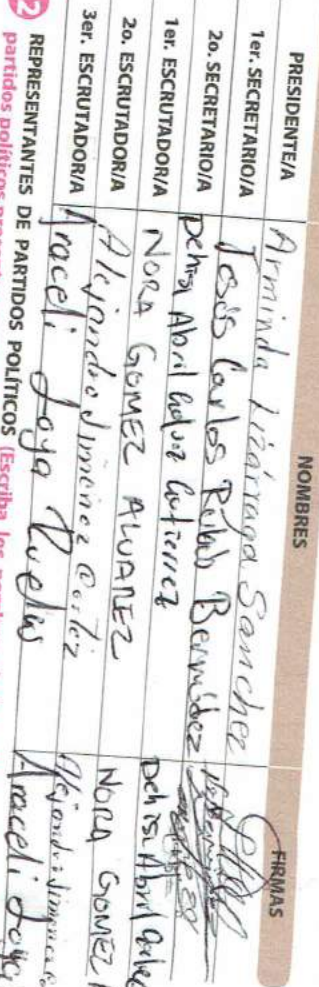 NOMBRES FIRMAS
PRESIDENTE/A Arminda Lizárraga Sanchez
1er. SECRETARIO/A Jesús Carlos Bermúdez
2o. SECRETARIO/A Abril Gutierrez Abril
1er. ESCRUTADOR/A NORA GOMEZ ALVAREZ NORA GOMEZ
2o. ESCRUTADOR/A Alejandro Jimenez Cortez Alejandro Jimenez
3er. ESCRUTADOR/A Araceli Joya Ruelas Araceli Joya
2 REPRESENTANTES DE PARTIDOS POLÍTICOS (Escriba los
partidos políticos